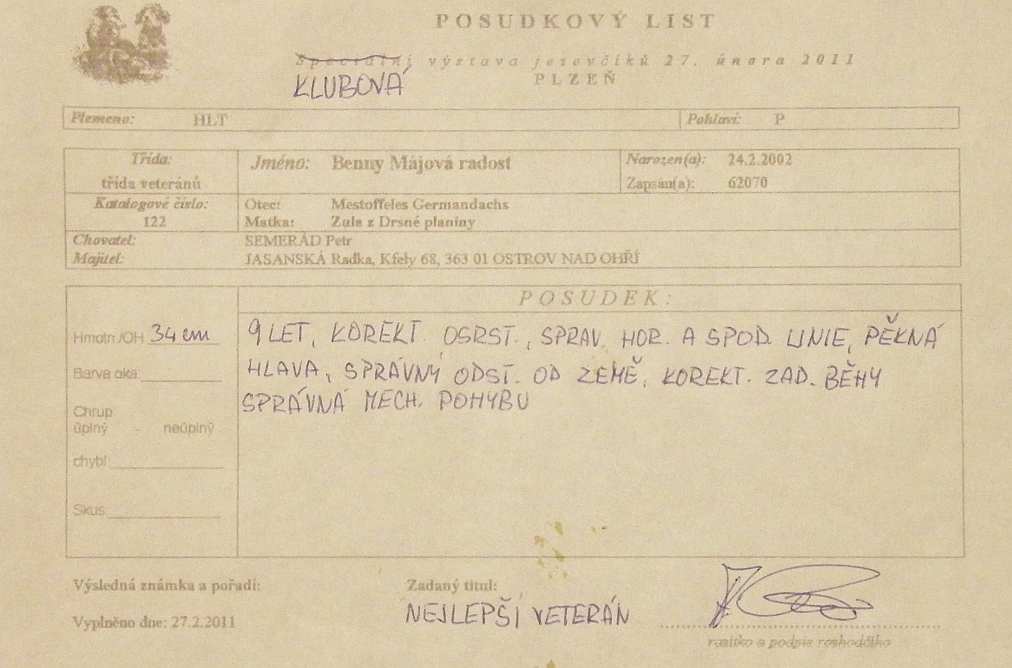 POSUDKOVÝ LIST
Speciální výstava jezevčíků 27. února 2011
KLUBOVÁ PLZEŇ
Plemeno: HLT Pohlaví: P
Třída: Jméno: Benny Májová radost Narozen(a): 24.2.2002
třída veteránů Zapsán(a): 62070
Katalogové číslo: Otec: Mestoffeles Germandachs
122 Matka: Zula z Drsné planiny
Chovatel: SEMERÁD Petr
Majitel: JASANSKÁ Radka, Kfely 68, 363 01 OSTROV NAD OHŘÍ
POSUDEK:
Hmotn./OH 34 cm 9 LET, KOREKT. OSRST., SPRAV. HOR. A SPOD. LINIE, PĚKNÁ
Barva oka: HLAVA, SPRÁVNÝ ODST. OD ZEMĚ, KOREKT. ZAD. BĚHY
Chrup SPRÁVNÁ MECH. POHYBU
úplný - neúplný
chybí:
Skus:
Výsledná známka a pořadí: Zadaný titul:
Vyplněno dne: 27.2.2011 NEJLEPŠÍ VETERÁN
razítko a podpis rozhodčího